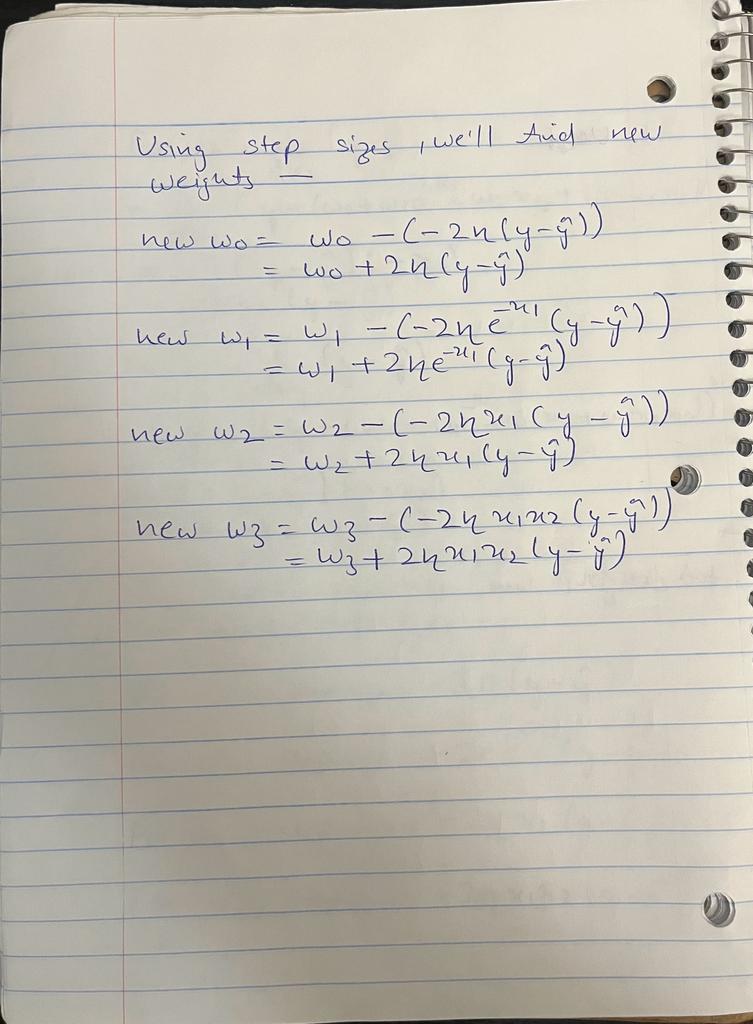 Using step sizes, we'll find new
weights —
new w0 = w0 - (-2η(y-ŷ))
= w0 + 2η(y-ŷ)
new w1 = w1 - (-2ηe^-x1 (y-ŷ))
= w1 + 2ηe^-x1 (y-ŷ)
new w2 = w2 - (-2ηx1(y-ŷ))
= w2 + 2ηx1(y-ŷ)
new w3 = w3 - (-2ηx1x2(y-ŷ))
= w3 + 2ηx1x2(y-ŷ)